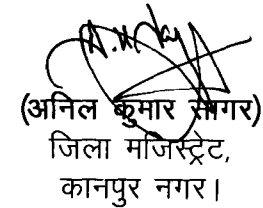 (अनिल कुमार सागर)
जिला मजिस्ट्रेट,
कानपुर नगर।